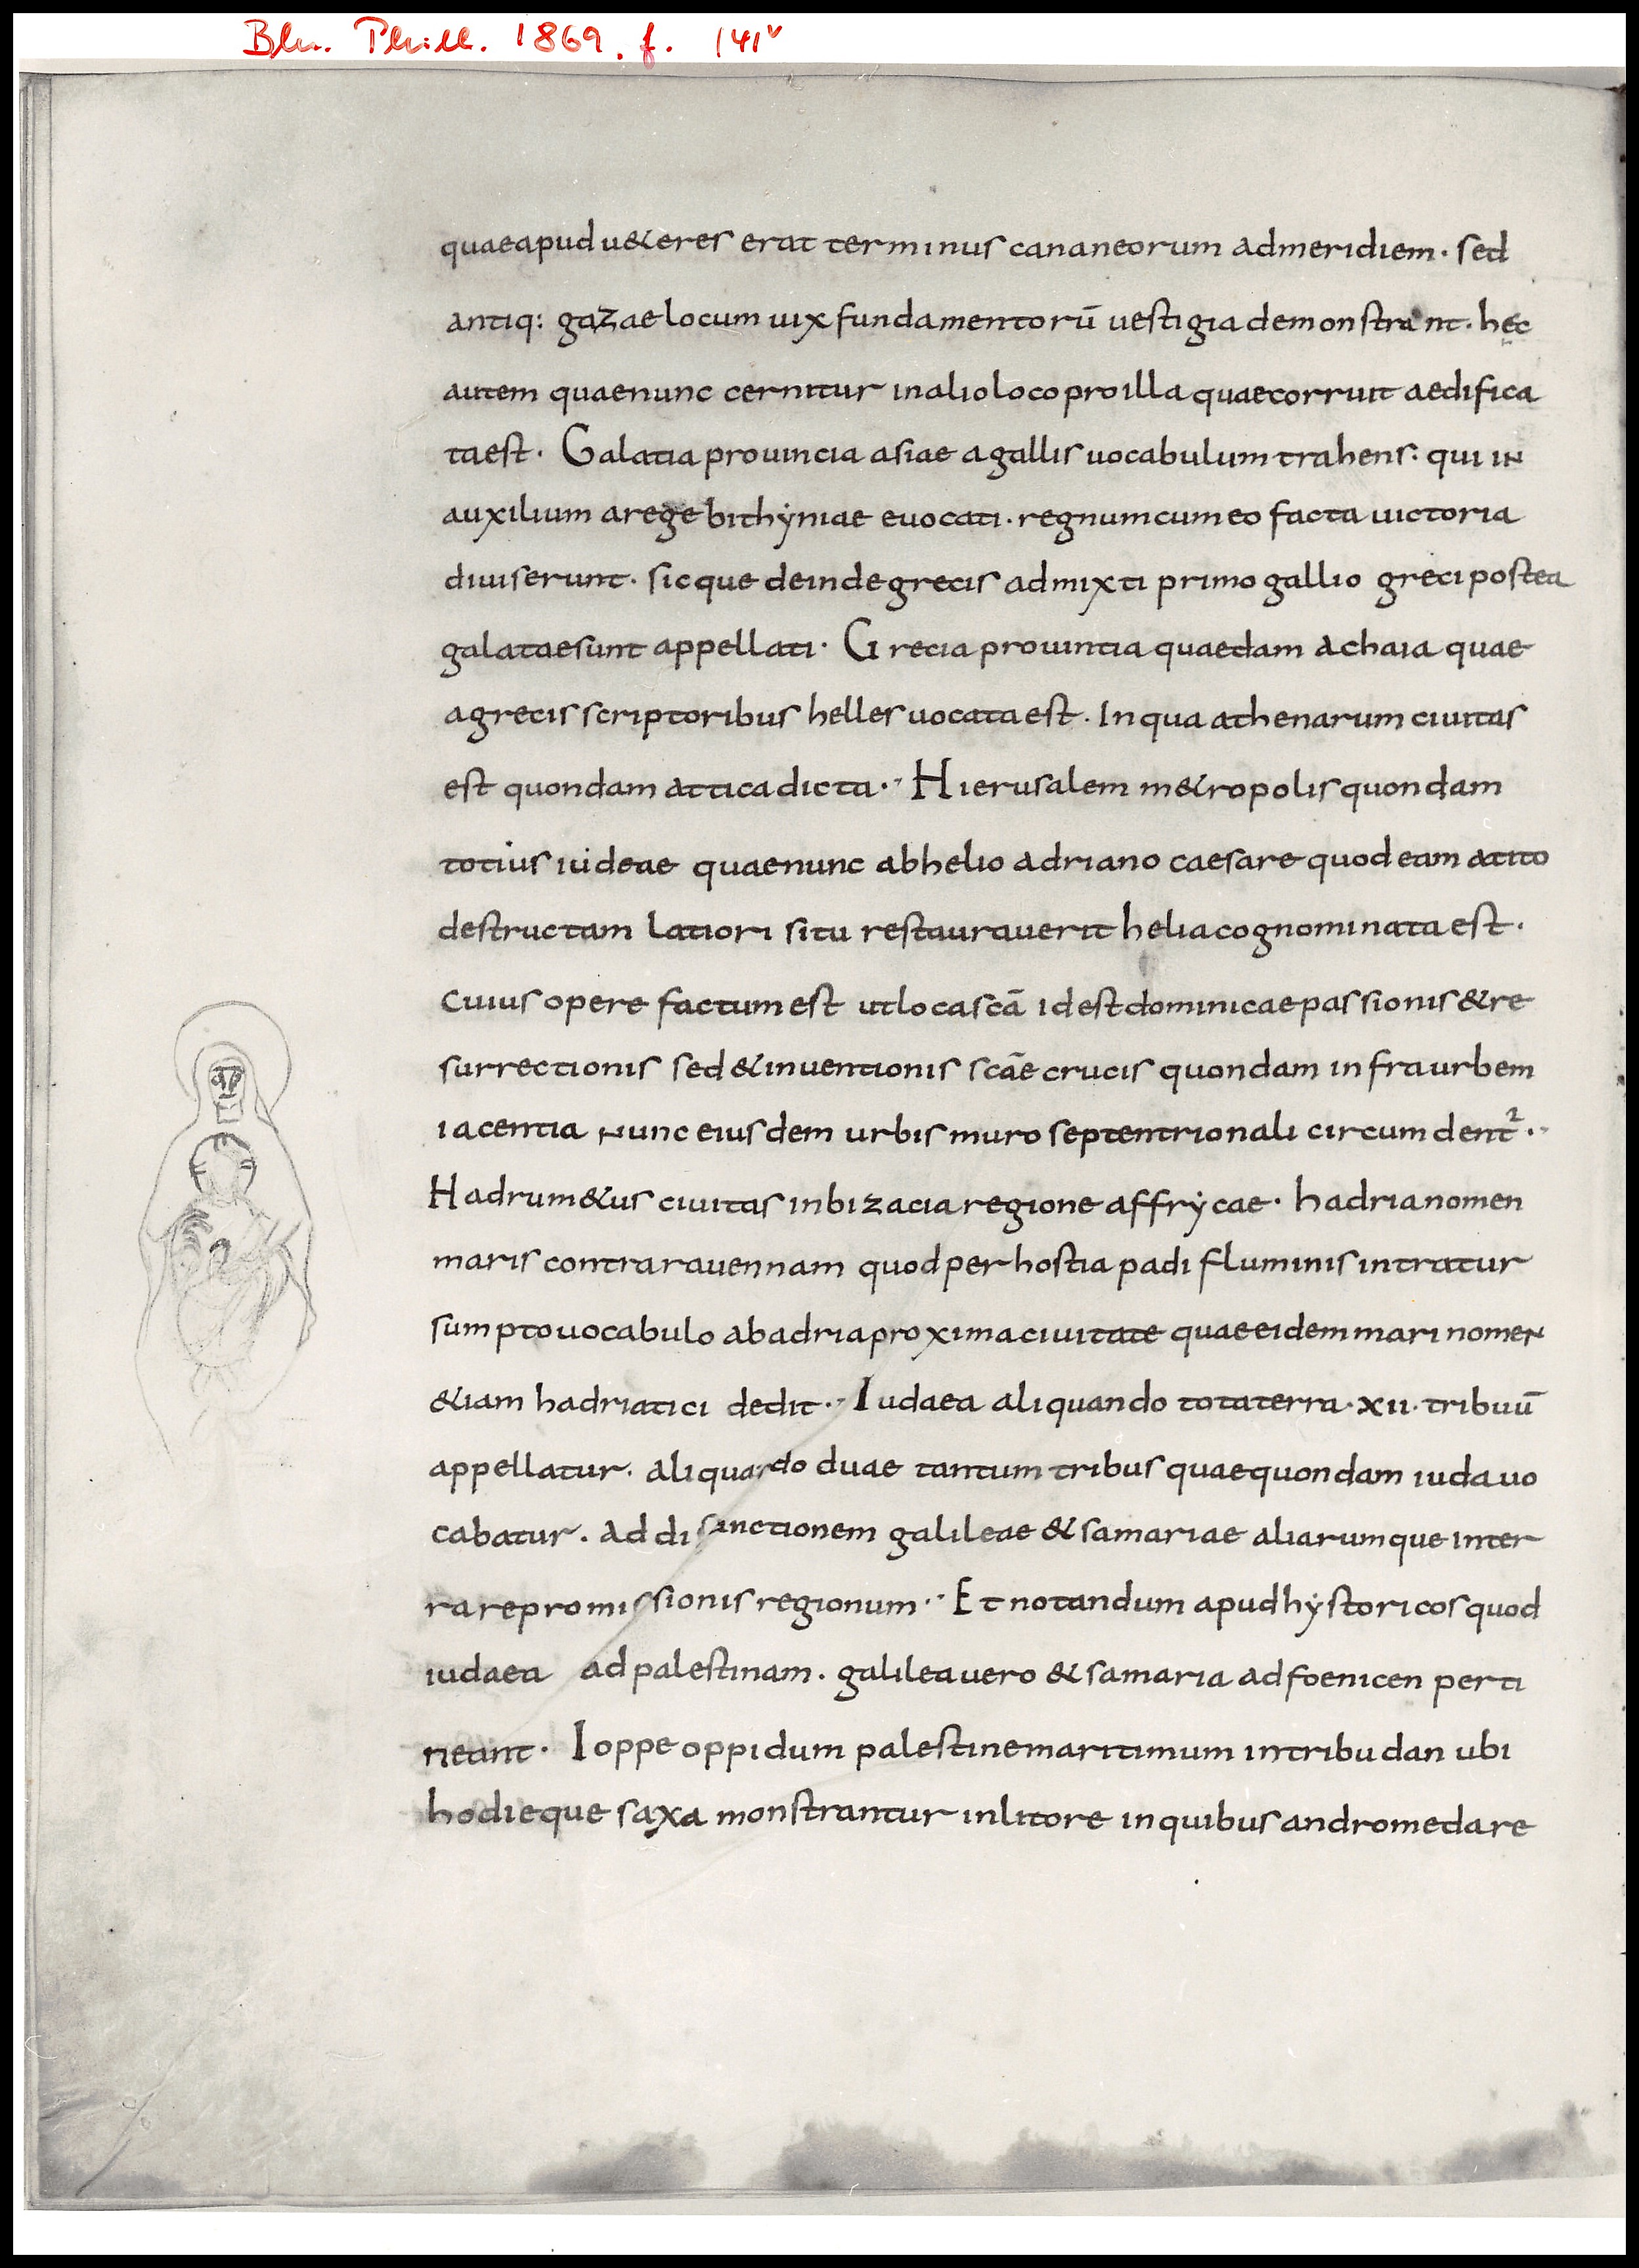 Bln. Phill. 1869. f. 141v
quae apud u&eres erat terminus cananeorum ad meridiem. sed
antiq: gazae locum uix fundamentorū uestigia demonstrant. hęc
autem quae nunc cernitur in alio loco pro illa quae corruit aedifica
ta est. Galatia prouincia asiae a gallis uocabulum trahens: qui in
auxilium a rege bithẏniae euocati. regnum cum eo facta uictoria
diuiserunt. sicque deinde grecis admixti primo gallio greci postea
galatae sunt appellati. Grecia prouintia quaedam achaia quae
a grecis scriptoribus helles uocata est. In qua athenarum ciuitas
est quondam attica dicta. Hierusalem m&ropolis quondam
totius iudeae quae nunc ab helio adriano caesare quod eam a tito
destructam latiori situ restaurauerit helia cognominata est.
cuius opere factum est ut loca scā id est dominicae passionis & re
surrectionis sed & inuentionis scāe crucis quondam infra urbem
iacentia nunc eiusdem urbis muro septentrionali circumdent2.
Hadrum&us ciuitas in bizacia regione affrẏcae. hadria nomen
maris contra rauennam quod per hostia padi fluminis intratur
sumpto uocabulo ab adria proxima ciuitate quae eidem mari nomen
&iam hadriatici dedit. Iudaea aliquando tota terra. xii. tribuū
appellatur. aliquando duae tantum tribus quae quondam iuda uo
cabatur. ad disanctionem galileae & samariae aliarumque in ter
ra repromissionis regionum. Et notandum apud hẏstoricos quod
iudaea ad palestinam. galilea uero & samaria ad foenicen perti
neant. Ioppe oppidum palestine maritimum in tribu dan ubi
hodieque saxa monstrantur in litore in quibus andromeda re